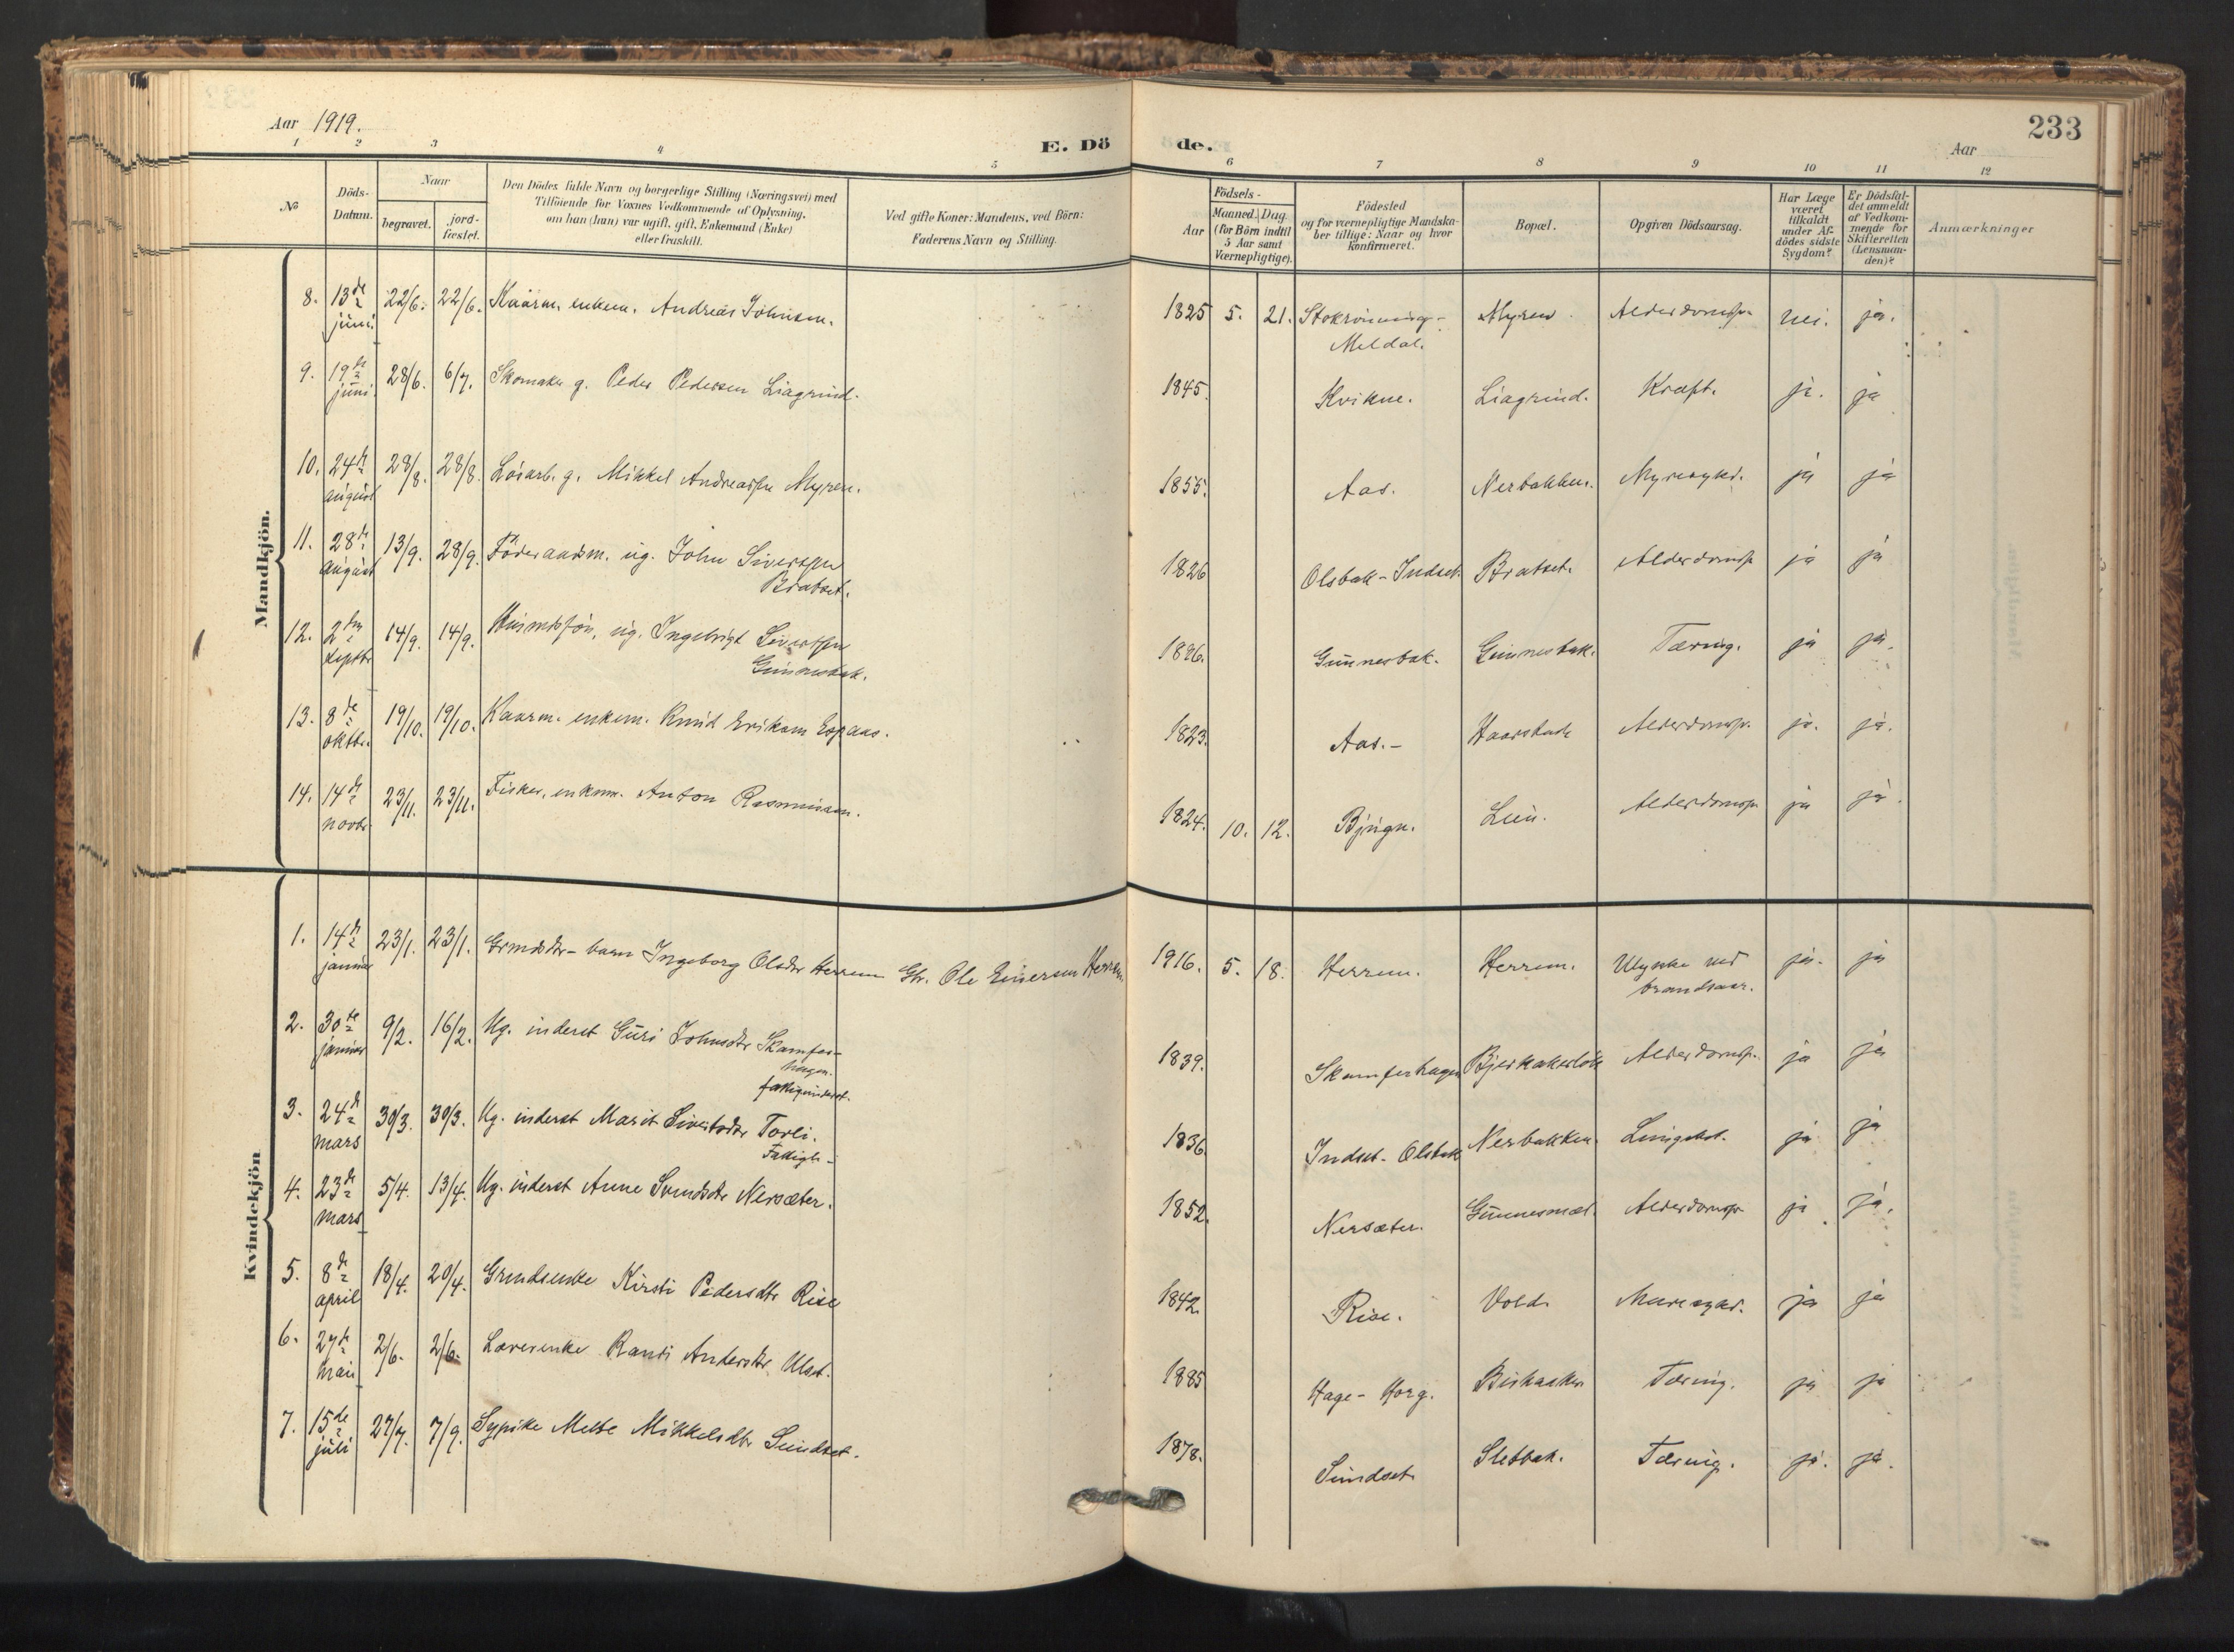 233
Aar 1919.
E. Dö de.
Aar
1 2 3 4 5 6 7 8 9 10 11 12
No
Döds-
Datum.
Naar
begravet.
jord-
fæstet.
Den Dödes fulde Navn og borgerlige Stilling (Næringsvei) med
Tilföiende for Voxnes Vedkommende af Oplysning,
om han (hun) var ugift, gift, Enkemand (Enke)
eller fraskilt.
Ved gifte Koner: Mandens, ved Börn:
Faderens Navn og Stilling.
Födsels-
Aar
Maaned. Dag.
(for Börn indtil
5 Aar samt
Værnepligtige).
Födested
og for værnepligtige Mandska-
ber tillige: Naar og hvor
konfirmeret.
Bopæl.
Opgiven Dödsaarsag.
Har Læge
været
tilkaldt
under Af-
dödes sidste
Sygdom?
Er Dödsfal-
det anmeldt
af Vedkom-
mende for
Skifteretten
(Lensman-
den)?
Anmærkninger
Mandkjön.
8. 13de juni 22/6. 22/6. Kaarm. enkem. Andreas Johnsen. 1825 5. 21. Stokrönning- Meldal. Myren. Alderdomssv. nei. ja.
9. 19de juni 28/6. 6/7. Skomaker g. Peder Pedersen Liagrind. 1845. Kvikne. Liagrind. Kræft. ja. ja
10. 24de august 28/8. 28/8. Lösarb. g. Mikkel Andreassen Myren. 1855. Aas. Nerbakken. ja ja
11. 28de august 13/9. 28/9. Föderaadsm. ug. John Sivertsen
Bratset. 1826 Olsbak-Indset. Bratset. Alderdomssv ja ja
12. 2den septbr 14/9. 14/9. Husmdssön, ug. Ingebrigt Sivertsen
Gunnesbak. 1896. Gunnesbak. Gunnesbak. Tæring. ja ja.
13. 8de oktbr. 19/10. 19/10. Kaarm. enkem. Knud Eriksen Espaas. 1823. Aas.- Haarstad Alderdomssv. ja. ja.
14. 14de novbr. 23/11. 23/11. Fisker, enkem. Anton Rasmussen. 1824. 10. 12. Bjugn. Lien. Alderdomssv. ja ja.
Kvindekjön
1. 14de januar 23/1. 23/1. Grmdsdtr-barn Ingeborg Olsdtr Herrem Gbr. Ole Einersen Herrem. 1916. 5. 18. Herrem. Herrem. Ulykke ved
brandsaar. ja. ja
2. 30te januar 9/2. 16/2. Ug. inderst Guri Johnsdtr Skamfer-
hagen.
fattigunderst. 1839. Skamferhagen Bjerkakerlök Alderdomssv. ja ja
3. 24de mars 30/3. 30/3. Ug. inderst Marit Sivertsdtr Torli.
Fattigl- 1836. Indset-Olsbak Nerbakken. Lungebet. ja ja
4. 23de mars 5/4. 13/4. Ug. inderst Anne Svendsdtr Nersæter. 1852. Nersæter. Gunnesmæl. Alderdomssv ja ja.
5. 8de april 18/4. 20/4. Grmdsenke Kirsti Pedersdtr Rise 1842. Rise. Vold. ja ja
6. 27de mai 2/6. 2/6. Lærerenke Randi Andersdtr Ulset. 1885 Hage-Horg. Tæring. ja ja
7. 15de juli 27/7. 7/9. Sypike Mette Mikkelsdtr Sundset. 1878. Sundset Sletbak. Tæring. ja. ja.